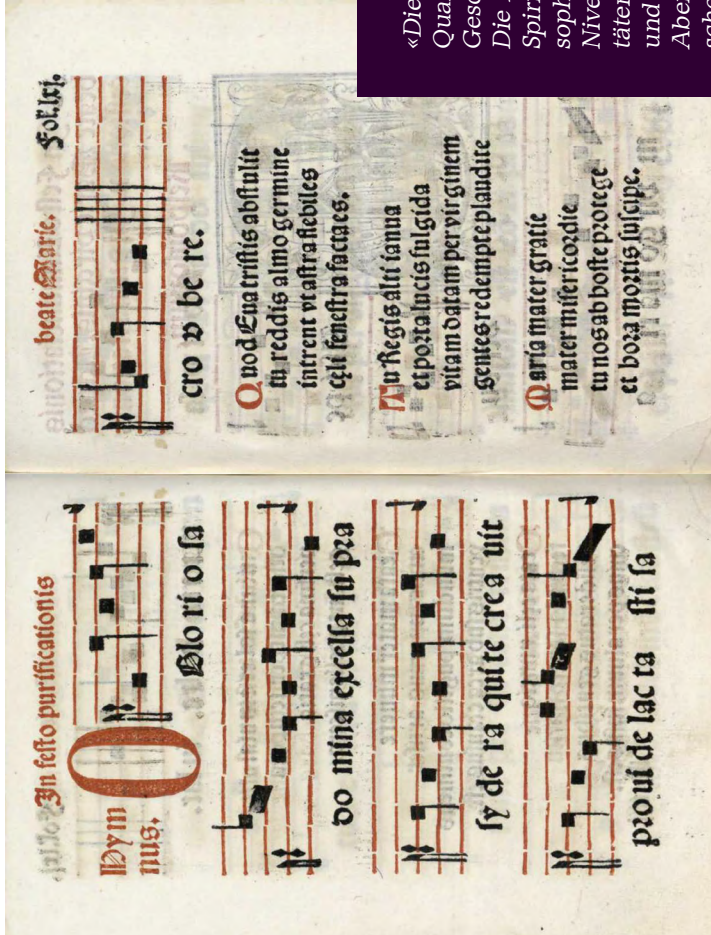 In feſto purificationis
Hym
nus.
O
Glo ri o ſa
do mina excelſa ſu pra
ſy de ra qui te crea uit
pro ui de lac ta ſti ſa
beate Marie. Fol. lxj.
cro v be re.
Quod Eua triſtis abſtulit
tu reddis almo germine
intrent vt aſtra flebiles
cęli feneſtra facta es.
Tu Regis alti ianua
et porta lucis fulgida
vitam datam per virginem
gentes redempte plaudite
Maria mater gratie
mater miſericordie
tu nos ab hoſte protege
et hora mortis ſuſcipe.
«Die
Qua
Gesc
Die
Spiri
soph
Nive
täten
und
Aber
sche